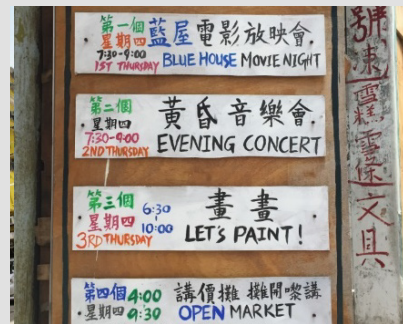 第一個
星期四
7:30-9:00
1ST THURSDAY
藍屋電影放映會
BLUE HOUSE MOVIE NIGHT
第二個
星期四
7:30-9:00
2ND THURSDAY
黃昏音樂會
EVENING CONCERT
第三個
星期四
3RD THURSDAY
6:30
10:00
畫畫
LET'S PAINT!
第四個
星期四
4:00
9:30
講價攤 攤開嚟講
OPEN MARKET
號凍雪糕雪途文具